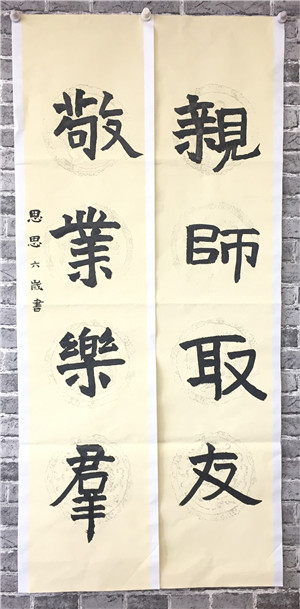 親師取友
敬業樂羣
思思六歲書